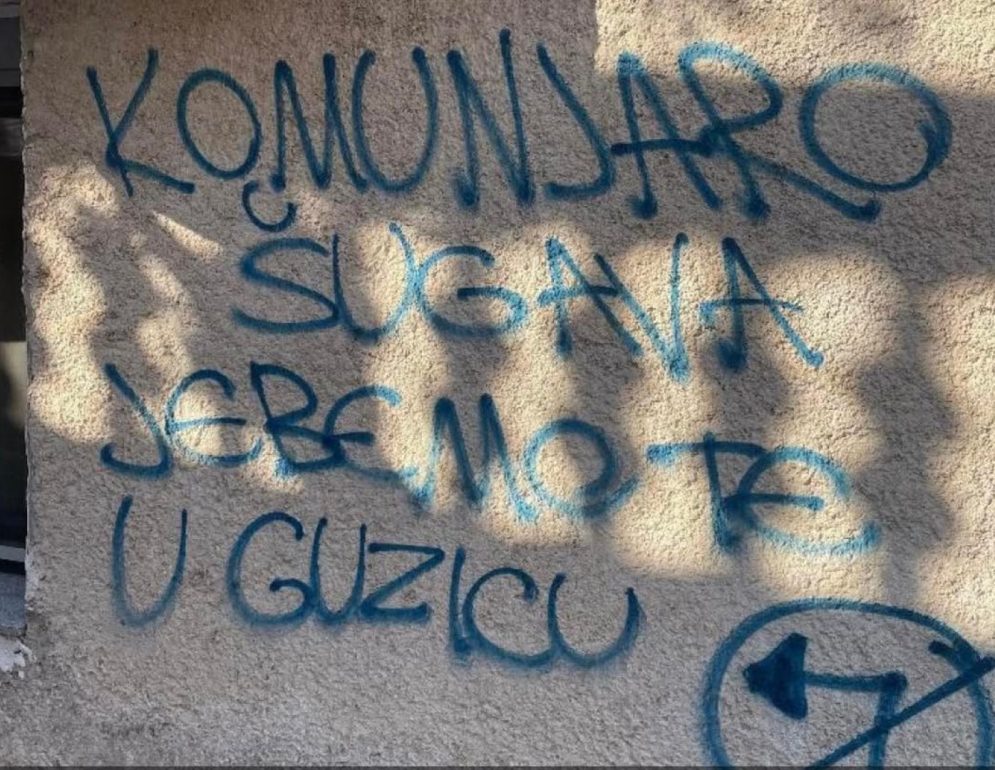 KOMUNJARO
ŠUGAVA
JEBEMO TE
U GUZICU